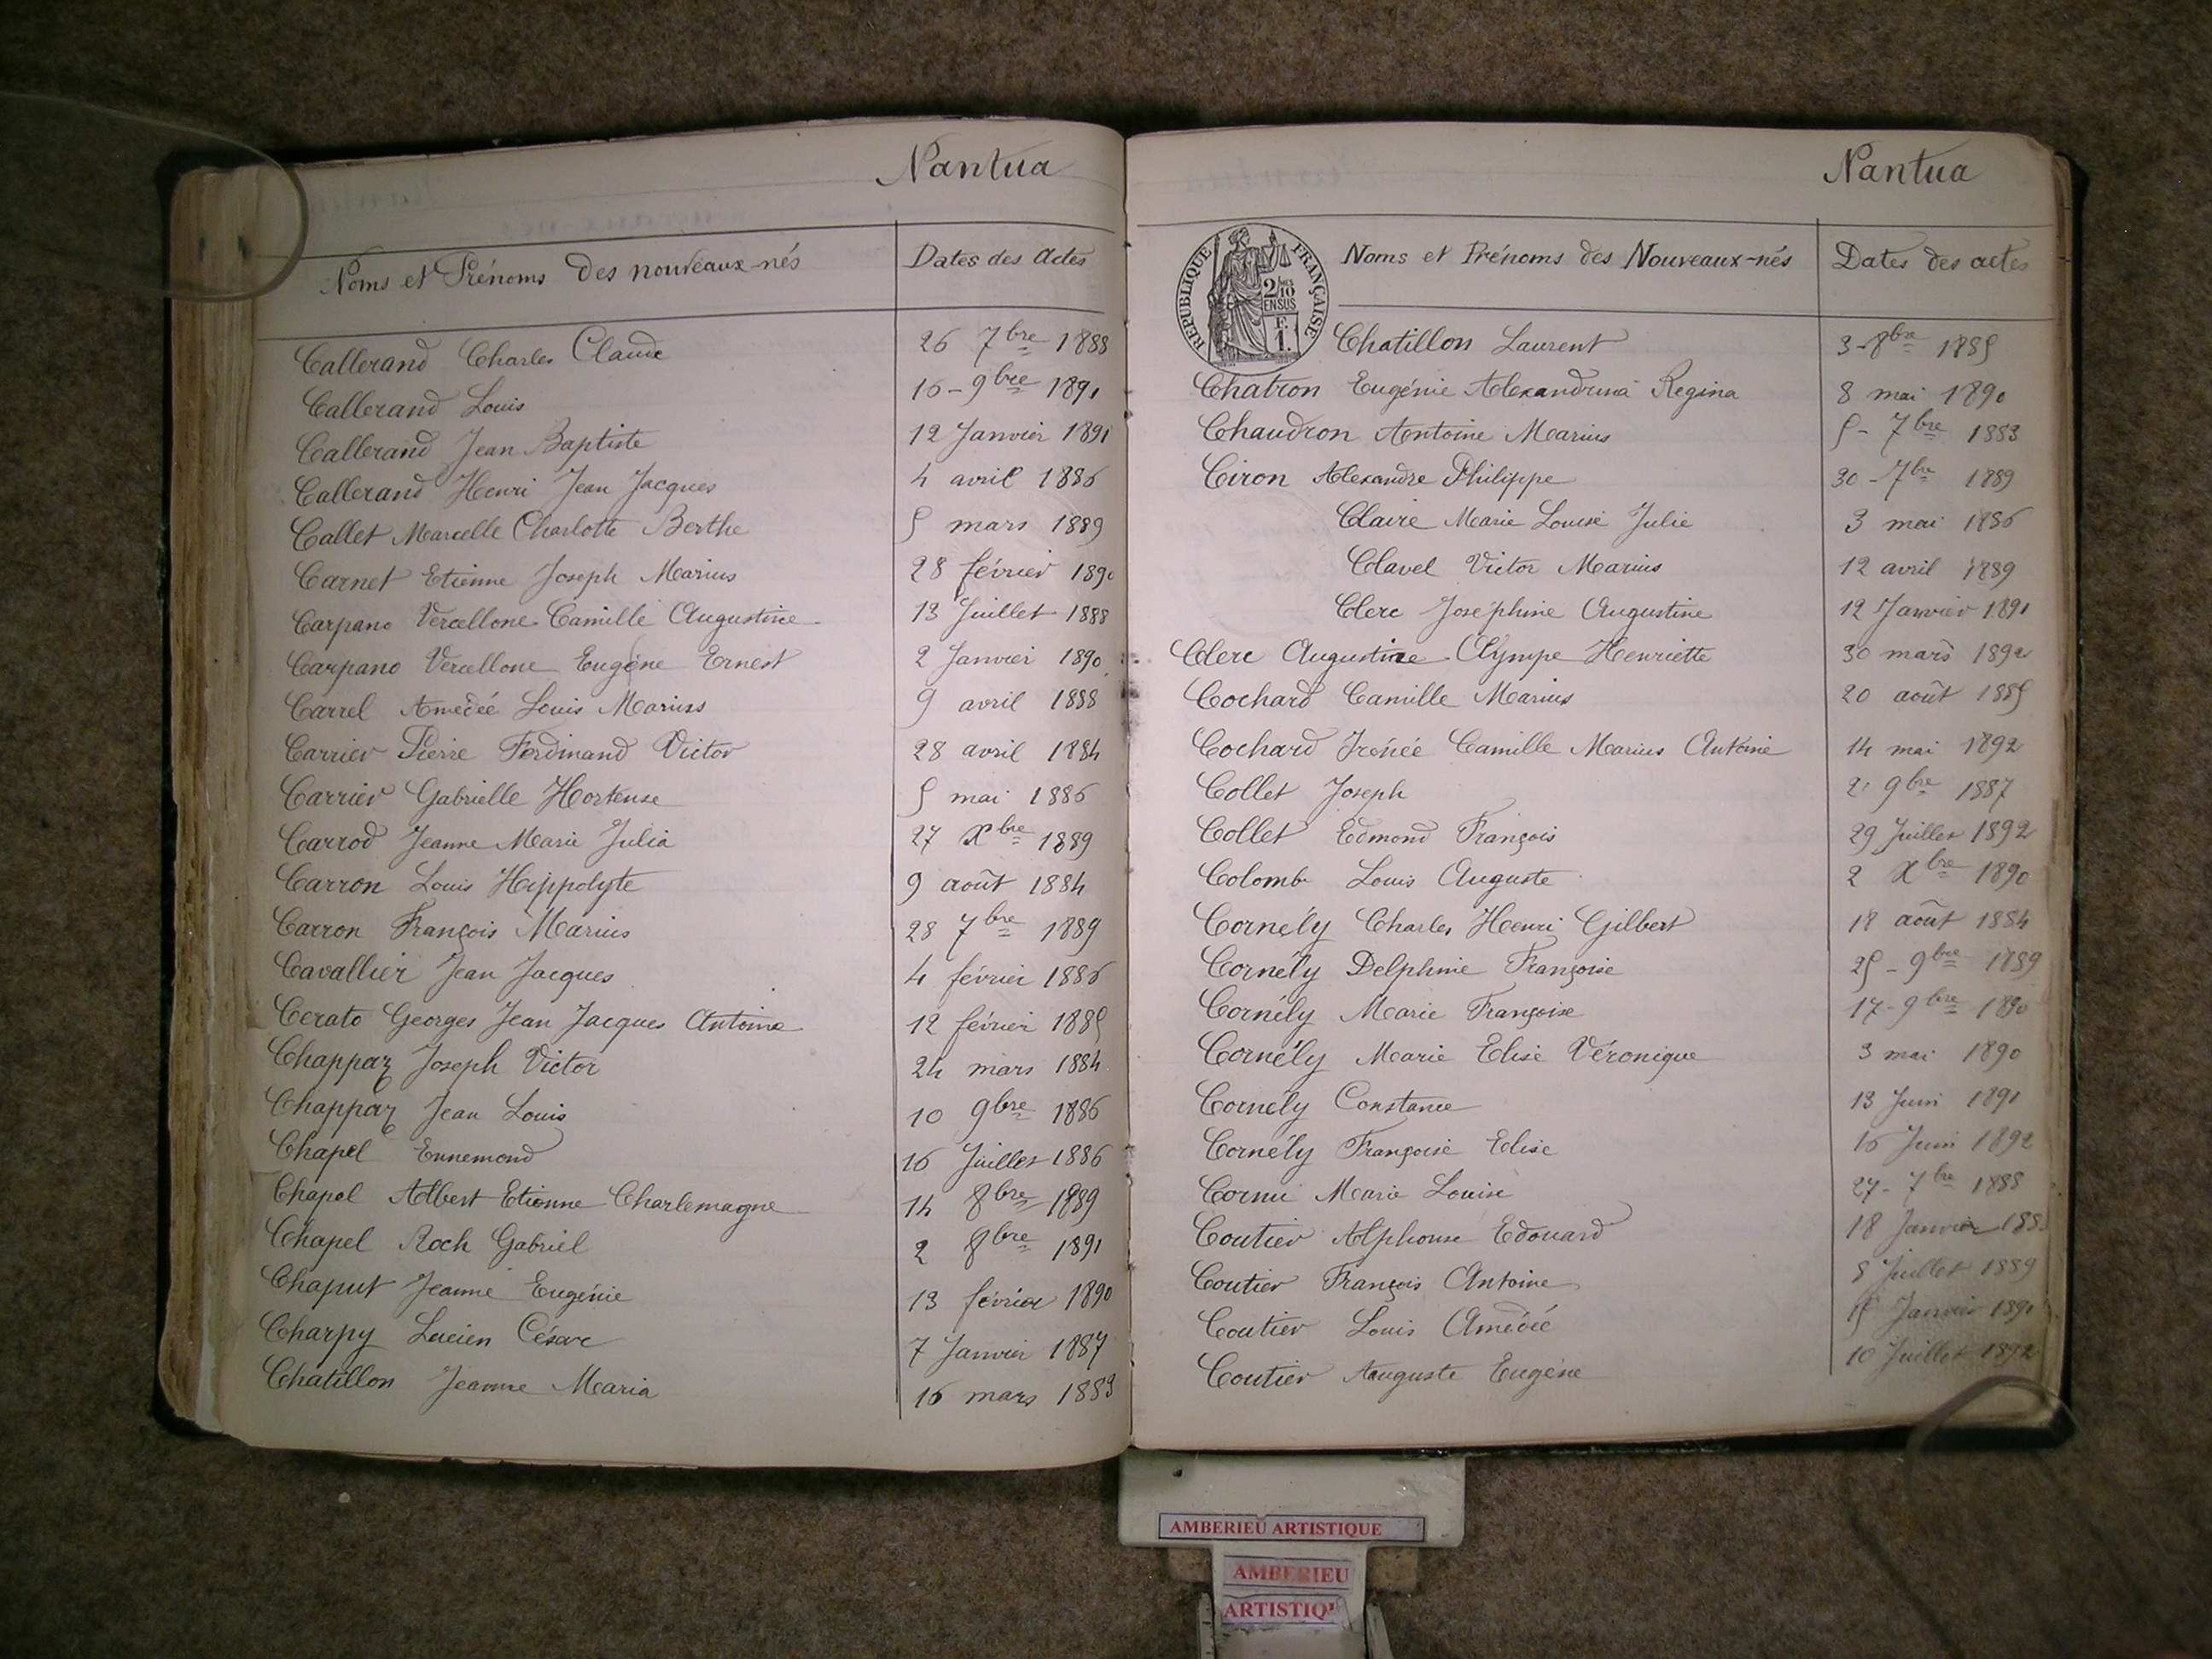 Nantua
Noms et Prénoms des nouveaux-nés Dates des Actes
Callerand Charles Claude 26 7bre 1888
Callerand Louis 16 - 9bre 1891
Callerand Jean Baptiste 12 Janvier 1891
Callerand Henri Jean Jacques 4 avril 1886
Callet Marcelle Charlotte Berthe 5 mars 1889
Carnet Etienne Joseph Marius 28 février 1890
Carpano Vercellone Camille Augustine 13 Juillet 1888
Carpano Vercellone Eugéne Ernest 2 Janvier 1890
Carrel Amedéé Louis Marius 9 avril 1888
Carrier Pierre Ferdinand Victor 28 avril 1884
Carrier Gabrielle Hortense 5 mai 1886
Carrod Jeanne Marie Julia 27 Xbre 1889
Carron Louis Hippolyte 9 août 1884
Carron François Marius 28 7bre 1889
Cavallier Jean Jacques 4 février 1886
Cerato Georges Jean Jacques Antoine 12 février 1885
Chappaz Joseph Victor 24 mars 1884
Chappaz Jean Louis 10 9bre 1886
Chapel Ennemond 16 Juillet 1886
Chapel Albert Etienne Charlemagne 14 8bre 1889
Chapel Roch Gabriel 2 8bre 1891
Chaput Jeanne Eugénie 13 février 1890
Charpy Lucien César 7 Janvier 1887
Chatillon Jeanne Maria 16 mars 1883
Nantua
REPUBLIQUE FRANÇAISE
2/10 EN SUS
F. 1.
Noms et Prénoms des Nouveaux-nés Dates des actes
Chatillon Laurent 3 - 8bre 1885
Chatron Eugénie Alexandrina Regina 8 mai 1890
Chaudron Antoine Marius 5 - 7bre 1883
Ciron Alexandre Philippe 30 - 7bre 1889
Claire Marie Louise Julie 3 mai 1886
Clavel Victor Marius 12 avril 1889
Clerc Joséphine Augustine 12 Janvier 1891
Clerc Augustine Olympe Henriette 30 mars 1892
Cochard Camille Marius 20 août 1885
Cochard Irénée Camille Marius Antoine 14 mai 1892
Collet Joseph 21 9bre 1887
Collet Edmond François 29 Juillet 1892
Colomb Louis Auguste 2 Xbre 1890
Cornély Charles Henri Gilbert 18 août 1884
Cornély Delphine Françoise 25 - 9bre 1889
Cornély Marie Françoise 17 - 9bre 1890
Cornély Marie Elise Véronique 3 mai 1890
Cornély Constance 13 Juin 1891
Cornély Françoise Elise 16 Juin 1892
Cornu Marie Louise 27 - 7bre 1888
Coutier Alphonse Edouard 18 Janvier
Coutier François Antoine Juillet 1889
Coutier Louis Amédéé 15 Janvier 1891
Coutier Auguste Eugéne 10 Juillet 1892
AMBERIEU ARTISTIQUE
AMBERIEU
ARTISTIQU